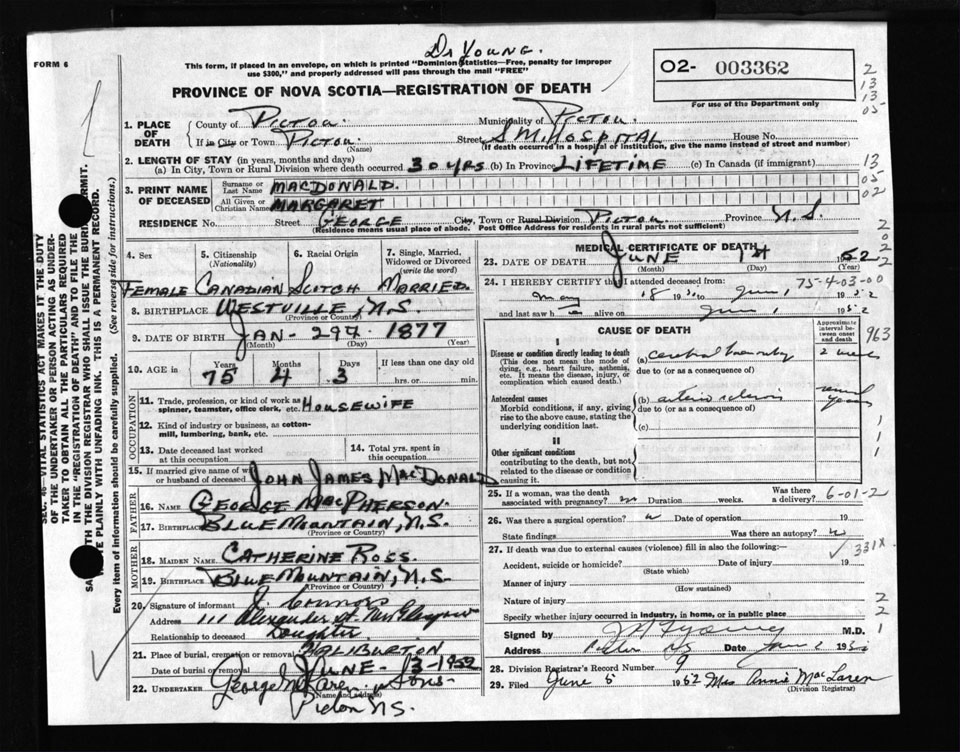 Dr Young.
FORM 6
This form, if placed in an envelope, on which is printed "Dominion Statistics—Free, penalty for improper
use $300," and properly addressed will pass through the mail "FREE"
02- 003362
For use of the Department only
PROVINCE OF NOVA SCOTIA—REGISTRATION OF DEATH
2
13
13
05
1. PLACE OF DEATH County of PICTOU. Municipality of PICTOU.
If in City or Town PICTOU (Name) Street S.M. HOSPITAL House No.
(If death occurred in a hospital or institution, give the name instead of street and number)
2. LENGTH OF STAY (in years, months and days)
(a) In City, Town or Rural Division where death occurred 30 YRS (b) In Province LIFETIME (c) In Canada (if immigrant)
13
05
02
3. PRINT NAME OF DECEASED
Surname or Last Name MACDONALD.
All Given or Christian Names MARGARET
RESIDENCE No. Street GEORGE City, Town or Rural Division PICTOU Province N.S.
(Residence means usual place of abode. Post Office Address for residents in rural parts not sufficient)
4. Sex 5. Citizenship (Nationality) 6. Racial Origin 7. Single, Married, Widowed or Divorced (write the word)
FEMALE CANADIAN SCITCH MARRIED.
8. BIRTHPLACE WESTVILLE N.S.
(Province or Country)
9. DATE OF BIRTH JAN- 29th. 1877
(Month) (Day)
10. AGE in Years Months Days If less than one day old
75 4 3 hrs. or min.
OCCUPATION
11. Trade, profession, or kind of work as
spinner, teamster, office clerk, etc. HOUSEWIFE
12. Kind of industry or business, as cotton-
mill, lumbering, bank, etc.
13. Date deceased last worked at this occupation
14. Total yrs. spent in this occupation
15. If married give name of wife
or husband of deceased JOHN JAMES MACDONALD
FATHER
16. NAME GEORGE MACPHERSON.
17. BIRTHPLACE BLUE MOUNTAIN, N.S.
(Province or Country)
MOTHER
18. MAIDEN NAME CATHERINE ROSS.
19. BIRTHPLACE BLUE MOUNTAIN, N.S.
(Province or Country)
20. Signature of informant J. Connors
Address 111 Alexander St. New Glasgow
Relationship to deceased Daughter
21. Place of burial, cremation or removal HALIBURTON
Date of burial or removal JUNE - 3-1952
22. UNDERTAKER George McLaren & Sons-
(Name and address)
Pictou N.S.
MEDICAL CERTIFICATE OF DEATH
23. DATE OF DEATH JUNE 1st 1952
(Month) (Day) (Year)
2
0
2
2
24. I HEREBY CERTIFY that I attended deceased from: 75-4-03-00
May 18 19 to June 1 1952
and last saw h alive on June 1 1952
CAUSE OF DEATH
Approximate interval between onset and death
963
I
Disease or condition directly leading to death
(This does not mean the mode of
dying, e.g., heart failure, asthenia,
etc. It means the disease, injury, or
complication which caused death.)
(a) cerebral hemorrhage 2 weeks
due to (or as a consequence of)
Antecedent causes
Morbid conditions, if any, giving
rise to the above cause, stating the
underlying condition last.
(b) arterio sclerosis years
due to (or as a consequence of)
(c)
1
1
1
II
Other significant conditions
contributing to the death, but not
related to the disease or condition
causing it.
25. If a woman, was the death
associated with pregnancy? no Duration weeks. Was there a delivery? 6-01-2
26. Was there a surgical operation? Date of operation 19
State findings Was there an autopsy?
27. If death was due to external causes (violence) fill in also the following:— 331X
Accident, suicide or homicide? Date of injury 19
(State which)
Manner of injury
(How sustained)
Nature of injury
2
Specify whether injury occurred in industry, in home, or in public place
2
Signed by Young M.D.
1
Address Pictou NS Date June 2 1952
28. Division Registrar's Record Number 9
29. Filed June 5 1952 Mrs Annie MacLaren
(Division Registrar)
SEC. 46—VITAL STATISTICS ACT MAKES IT THE DUTY
OF THE UNDERTAKER OR PERSON ACTING AS UNDER-
TAKER TO OBTAIN ALL THE PARTICULARS REQUIRED
IN THE "REGISTRATION OF DEATH" AND TO FILE THE
THE DIVISION REGISTRAR WHO SHALL ISSUE THE BURIAL PERMIT.
PLAINLY WITH UNFADING INK. THIS IS A PERMANENT RECORD.
Every item of information should be carefully supplied. (See reverse side for instructions.)